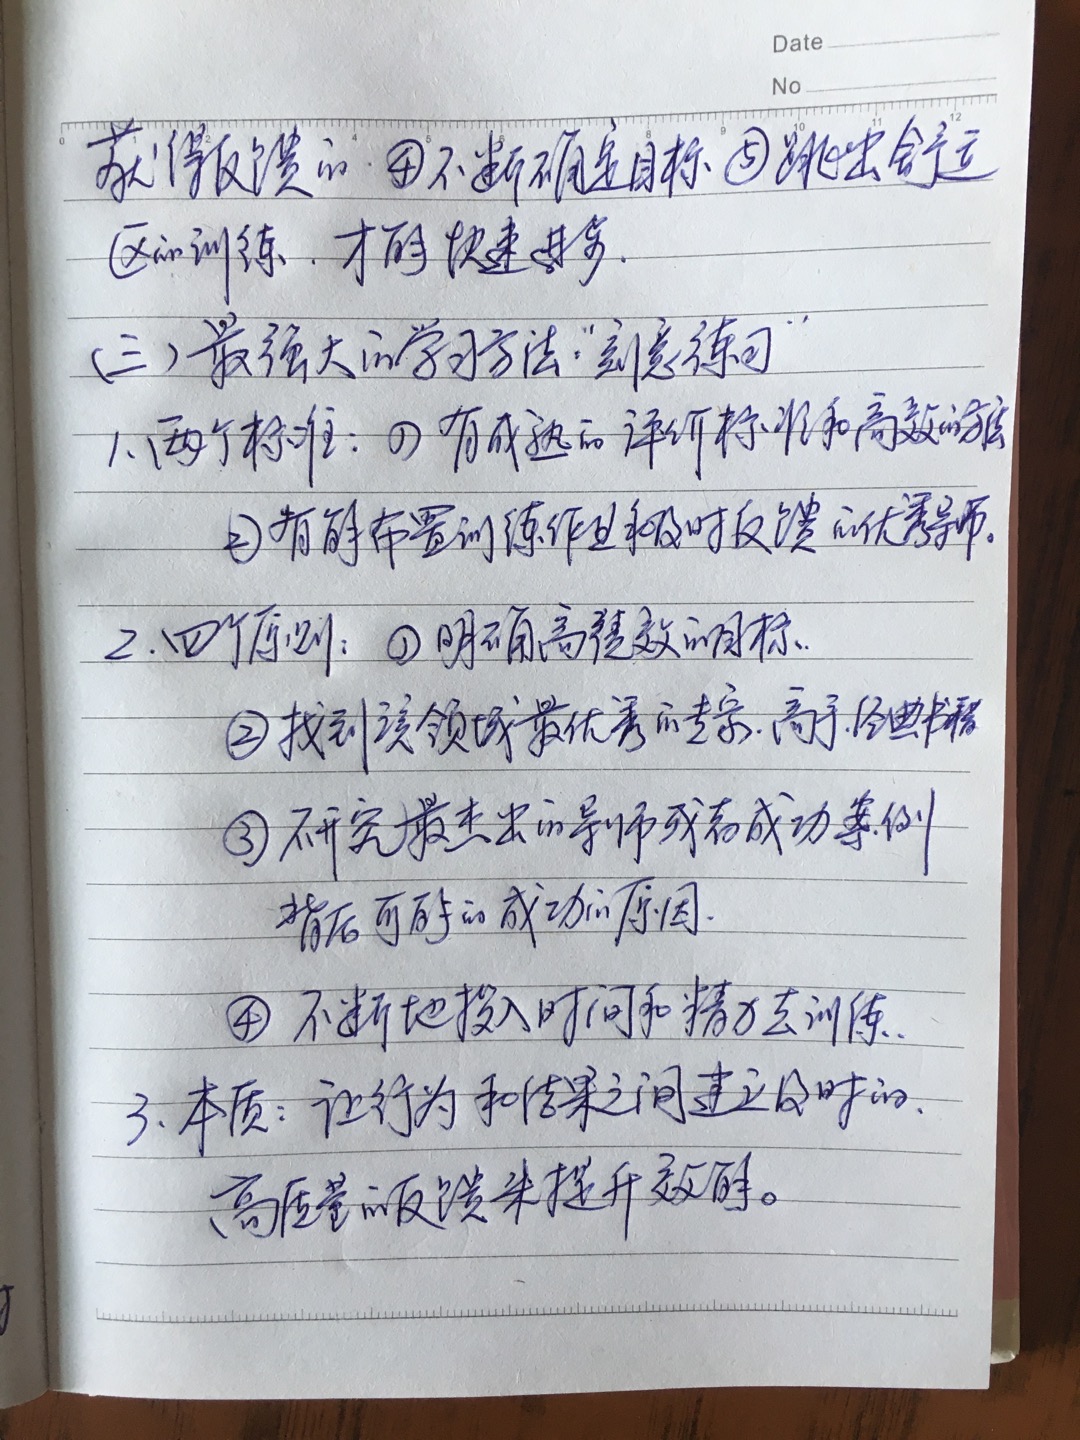 Date
No
0 1 2 3 4 5 6 7 8 9 10 11 12
获得反馈的. ④不断确定目标 ⑤跳出舒适
区的训练. 才能快速进步.
(三)最强大的学习方法:"刻意练习"
1.两个标准: ①有成熟的评价标准和高效的方法
②有能布置训练作业和及时反馈的优秀导师。
2.四个原则: ①明确高绩效的目标.
②找到该领域最优秀的专家.高手.经典书籍
③研究最杰出的导师或者成功案例
背后可能的成功的原因.
④不断地投入时间和精力去训练.
3.本质:让行为和结果之间建立及时的.
高质量的反馈来提升效能。